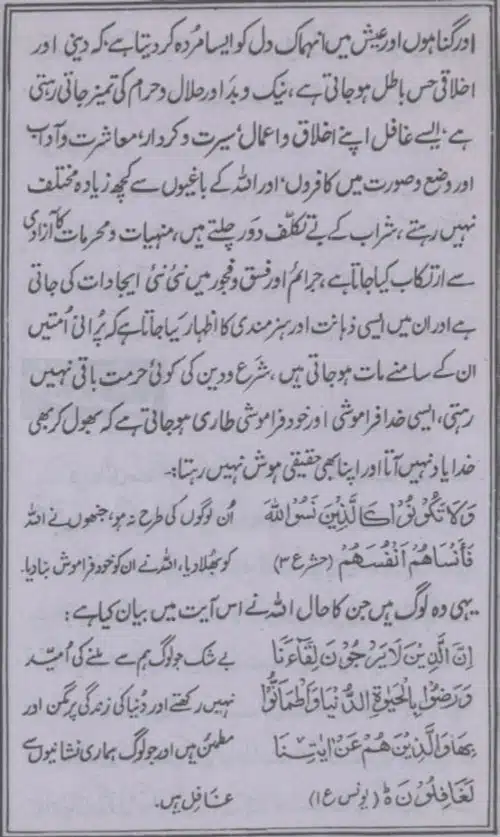 اور گناہوں اور عیش میں انہماک دل کو ایسا مردہ کر دیتا ہے، کہ دینی اور
اخلاقی حس باطل ہو جاتی ہے، نیک و بد اور حلال و حرام کی تمیز جاتی رہتی
ہے، ایسے غافل اپنے اخلاق و اعمال، سیرت و کردار، معاشرت و آداب
اور وضع و صورت میں کافروں، اور اللہ کے باغیوں سے کچھ زیادہ مختلف
نہیں رہتے، شراب کے بے تکلف دور چلتے ہیں، منہیات و محرمات کا آزادی
سے ارتکاب کیا جاتا ہے، جرائم اور فسق و فجور میں نئی نئی ایجادات کی جاتی
ہے اور ان میں ایسی ذہانت اور ہنرمندی کا اظہار کیا جاتا ہے کہ پرانی امتیں
ان کے سامنے مات ہو جاتی ہیں، شرع و دین کی کوئی حرمت باقی نہیں
رہتی، ایسی خدا فراموشی اور خود فراموشی طاری ہو جاتی ہے کہ بھول کر بھی
خدا یاد نہیں آتا اور اپنا بھی حقیقی ہوش نہیں رہتا:۔
وَلَا تَكُوْنُوْا كَالَّذِيْنَ نَسُوا اللهَ اُن لوگوں کی طرح نہ ہو، جنھوں نے اللہ
فَأَنْسَاهُمْ اَنْفُسَهُمْ (حشر ع ۳) کو بھلا دیا، اللہ نے ان کو خود فراموش بنا دیا۔
یہی وہ لوگ ہیں جن کا حال اللہ نے اس آیت میں بیان کیا ہے:
اِنَّ الَّذِيْنَ لَا يَرْجُوْنَ لِقَآءَنَا بے شک جو لوگ ہم سے ملنے کی اُمید
وَرَضُوْا بِالْحَيٰوةِ الدُّنْيَا وَاطْمَاَنُّوْا نہیں رکھتے اور دُنیا کی زندگی پر مگن اور
بِهَا وَالَّذِيْنَ هُمْ عَنْ اٰيٰتِنَا مطمئن ہیں اور جو لوگ ہماری نشانیوں سے
لَغَافِلُوْنَ ہ (یونس ع ۱) غافل ہیں۔